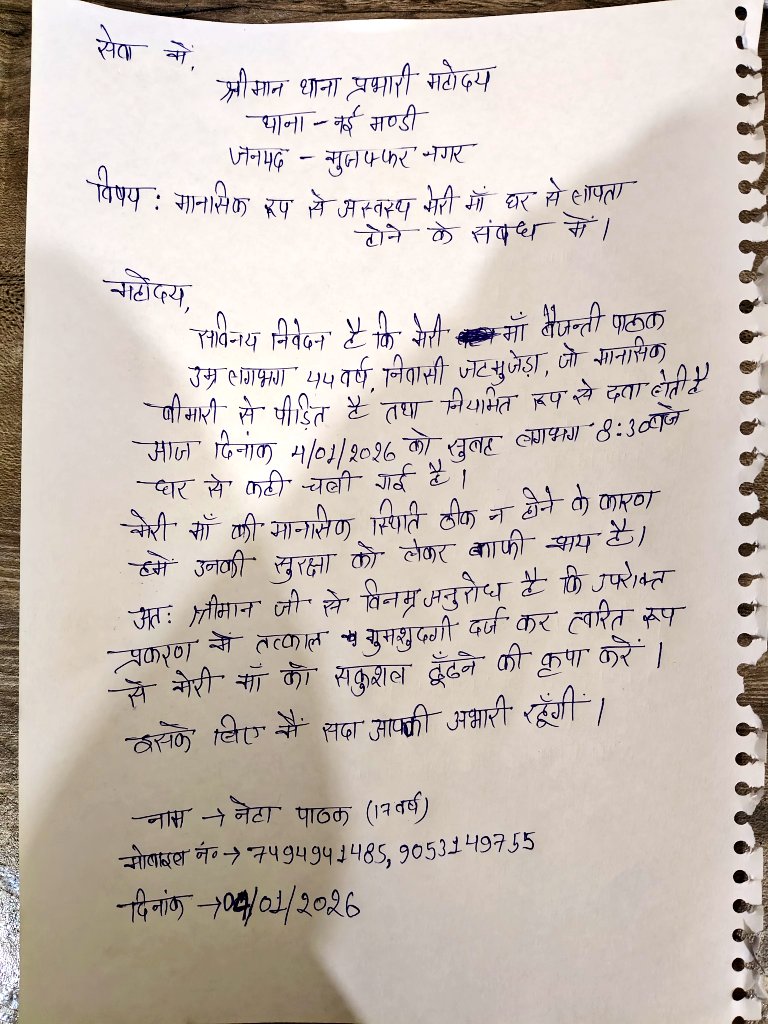 सेवा में,
श्रीमान थाना प्रभारी महोदय
थाना - नई मण्डी
जनपद - मुजफ्फर नगर
विषय : मानसिक रूप से अस्वस्थ मेरी माँ घर से लापता
होने के संबंध में।
महोदय,
सविनय निवेदन है कि मेरी माँ वैजन्ती पाठक
उम्र लगभग 44 वर्ष, निवासी जटमुजेड़ा, जो मानसिक
बीमारी से पीड़ित है तथा नियमित रूप से दवा लेती है
आज दिनांक 4/01/2026 को सुबह लगभग 8:30 बजे
घर से कही चली गई है।
मेरी माँ की मानसिक स्थिति ठीक न होने के कारण
हमें उनकी सुरक्षा को लेकर काफी भय है।
अतः श्रीमान जी से विनम्र अनुरोध है कि उपरोक्त
प्रकरण में तत्काल गुमशुदगी दर्ज कर त्वरित रूप
से मेरी माँ को सकुशल ढूँढने की कृपा करें।
इसके लिए मैं सदा आपकी अभारी रहूँगीं।
नाम → नेहा पाठक (17 वर्ष)
मोबाइल नं० → 7494941485, 9053149755
दिनांक → 04/01/2026